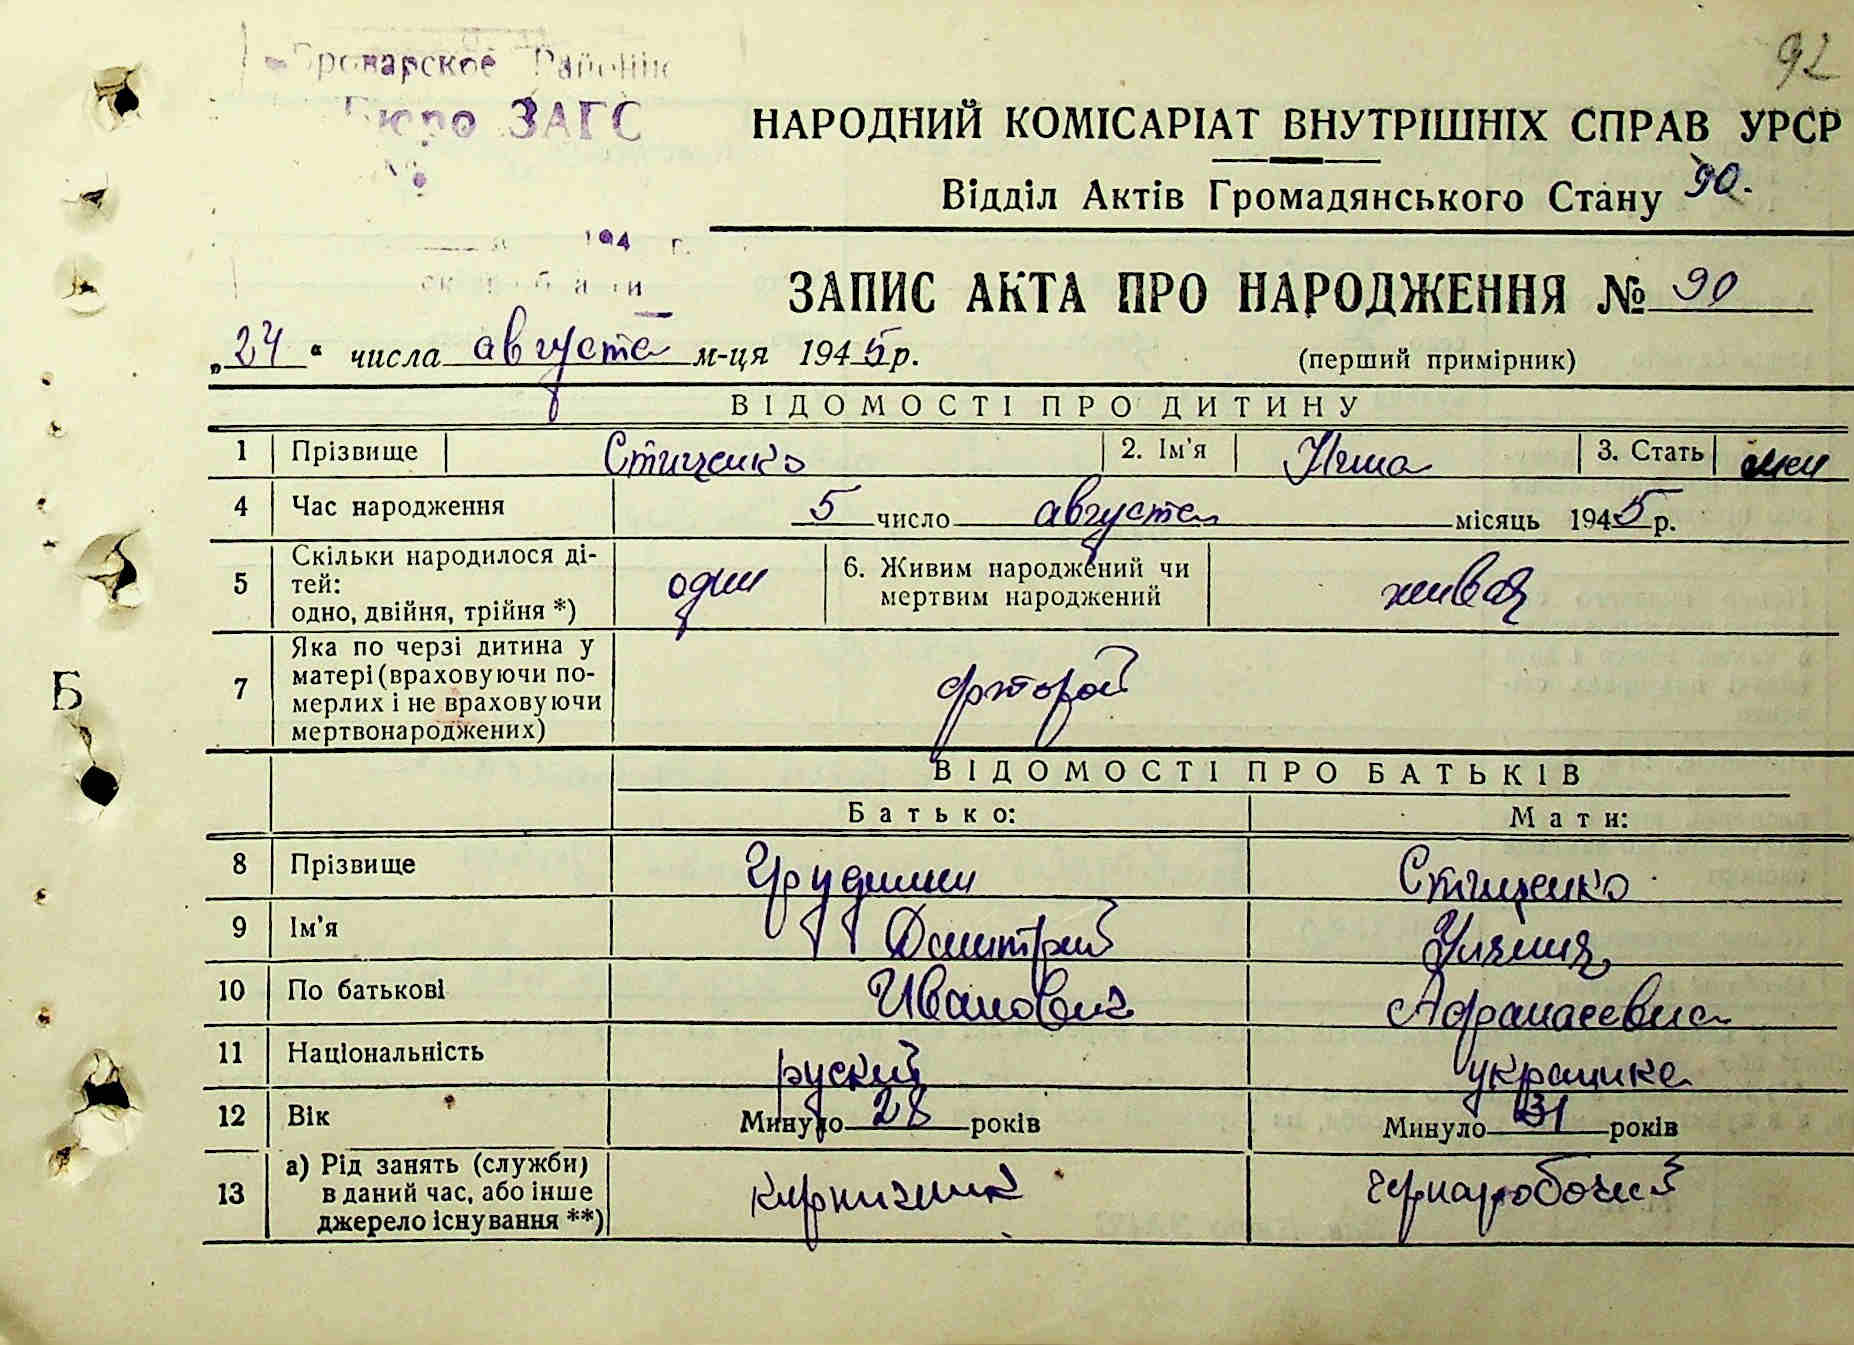 92
Броварское Районн
Бюро ЗАГС
№
194 г.
НАРОДНИЙ КОМІСАРІАТ ВНУТРІШНІХ СПРАВ УРСР
Відділ Актів Громадянського Стану 90.
ЗАПИС АКТА ПРО НАРОДЖЕННЯ № 90
„24“ числа августа м-ця 1945 р. (перший примірник)
ВІДОМОСТІ ПРО ДИТИНУ
1 Прізвище Стищенко 2. Ім'я Нина 3. Стать жен
4 Час народження 5 число августа місяць 1945 р.
5 Скільки народилося ді-
тей:
одно, двійня, трійня *) один
6. Живим народжений чи
мертвим народжений живая
7 Яка по черзі дитина у
матері (враховуючи по-
мерлих і не враховуючи
мертвонароджених) второй
Б
ВІДОМОСТІ ПРО БАТЬКІВ
Батько: Мати:
8 Прізвище Грудинин Стищенко
9 Ім'я Дмитрий Ульяния
10 По батькові Иванович Афанасевна
11 Національність руский украинка
12 Вік Минуло 28 років Минуло 31 років
13 а) Рід занять (служби)
в даний час, або інше
джерело існування **) чернарабочий